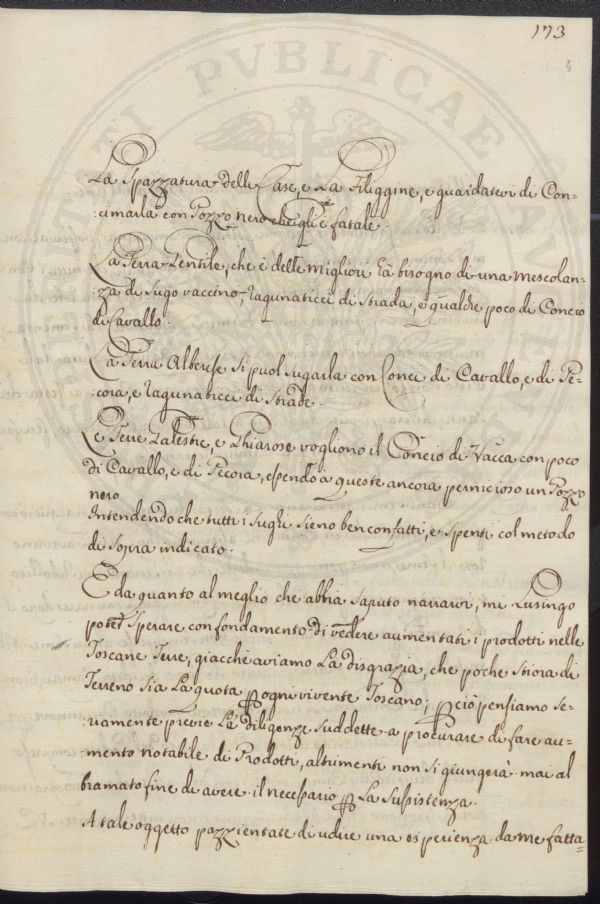 173
La Spazzatura delle Case, e La Filiggine, e guardatevi di Con=
:cimarla con Pozzo nero che gli è fatale.
La Terra Gentile, che è delle migliori hà bisogno di una mescolan=
:za di sugo vaccino Lagunaticci di Strada, e qualche poco di Concio
di Cavallo.
La Terra Alberese si puol sugarla con Conci di Cavallo, e di Pe=
:cora, e Lagunaticci di Strade.
Le Terre Galestre, e Ghiarose vogliono il Concio di Vacca con poco
di Cavallo, e di Pecora, essendo a queste ancora pernicioso un Pozzo
nero
Intendendo che tutti i sughi sieno ben confatti, e spenti col metodo
di sopra indicato.
E da quanto al meglio che abbia saputo narrarvi, mi Lusingo
poter sperare con fondamento di vedere aumentati i prodotti nelle
Toscane Terre, giacchè aviamo La disgrazia, che poche Stiora di
Terreno sia La quota per ogni vivente Toscano; per ciò pensiamo se=
:riamente previe La diligenze suddette a procurare di fare au=
:mento notabile di Prodotti, altrimenti non si giungerà mai al
bramato fine di avere il necessario per La Sussistenza.
A tale oggetto pazzientate di udire una esperienza da me fatta=
PUBLICAE